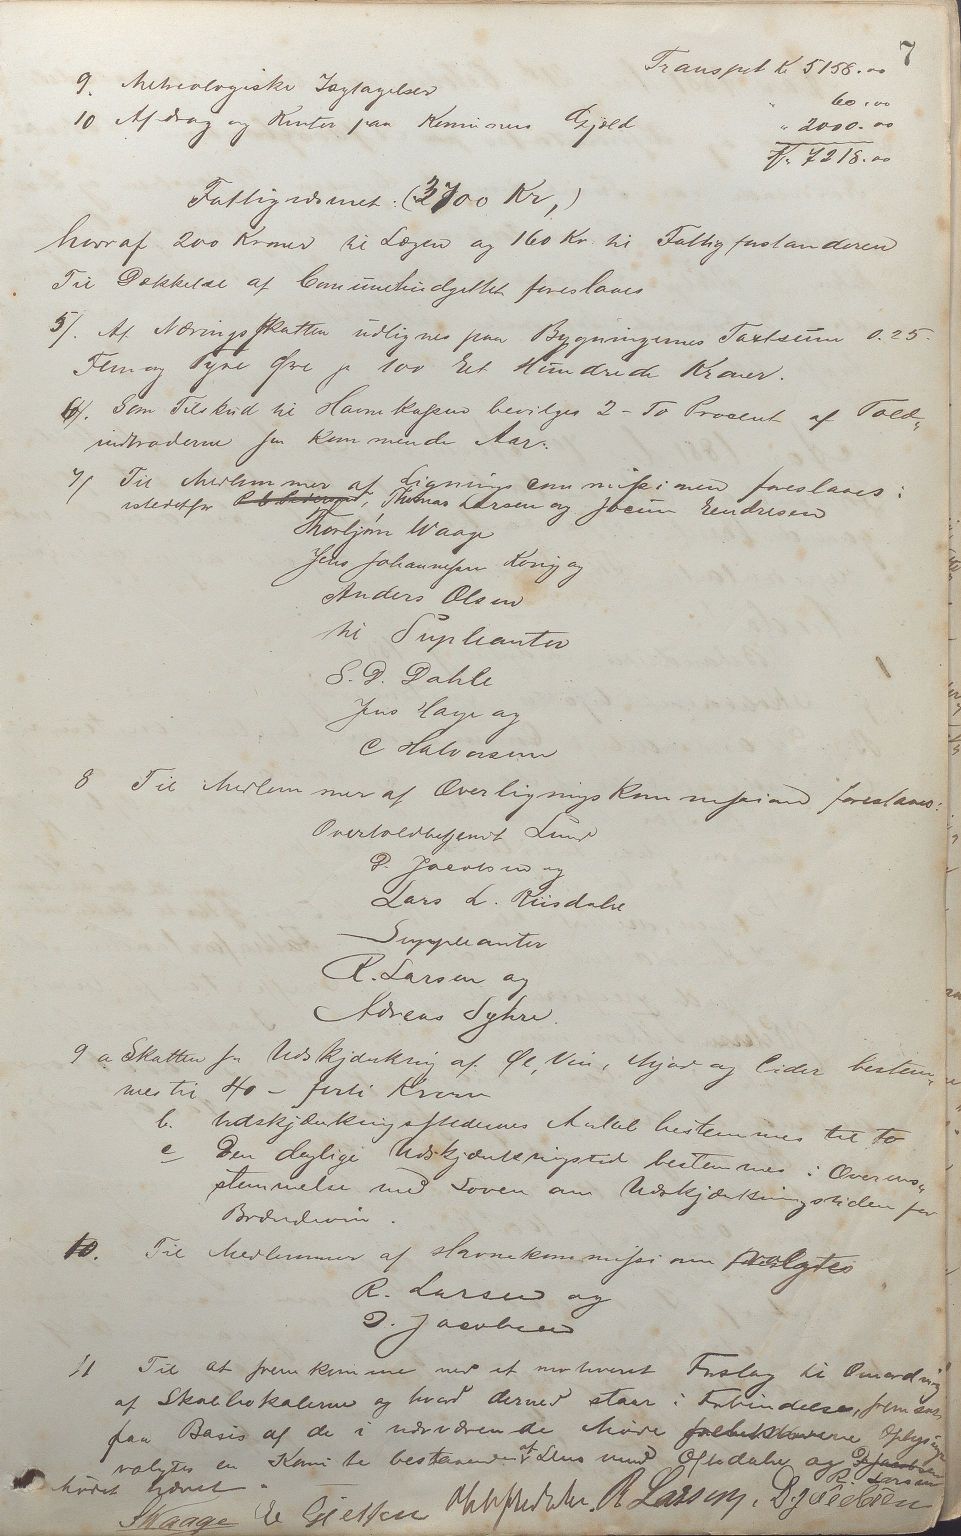 7
Transpot Kr 5158.00
9. Metreologiske Iagtagelser " 60.00
10 Afdrag og Renter paa Kommunens Gjæld " 2000.00
Kr. 7218.00
Fattigvæsenet. (3700 Kr,)
hvoraf 200 Kroner til Lægen og 160 Kr. til Fattigforstanderen
Til Dækkelse af Comunebudgettet foreslaaes
5/. At Næringsskatten udlignes paa Bygningernes Taxtsum 0.25.
Fem og Tyve Øre pr 100 Et Hundrede Kroner.
6/. Som Tilskud til Havnekassen bevilges 2 - To Procent af Told-
indtræderne for kommende Aar.
7/ Til Medlemmer af Ligningscommissionen foreslaaes:
istedetfor Thomas Larsen og Jocum Endresen
Thorbjørn Waage
Jens Johannesen Kvrig og
Anders Olsen
til Supleanter
S. D. Dahle
Jens Hage og
C Halvorsen
8 Til Medlemmer af Overligningskommissionen foreslaaes:
Overtoldbetjendt Lund
D. Jacobsen og
Lars L. Riisdahl
Suppleanter
R. Larsen og
Andreas Sylvre.
9 a Skatten for Udskjænkning af Øl, Vin, Mjød og Cider bestem-
mes til 40 - forti Kroner
b. Udskjænkningsstedernes Antal bestemmes til to
c Den daglige Udskjænkningstid bestemmes i Overens-
stemmelse med Loven om Udskjænkningstiden for
Brændeviin.
10. Til Medlemmer af Havnekommissionen valgtes
R. Larsen og
D. Jacobsen
11 Til at fremkomme med et motiveret Forslag til Omordning
af Skolelokalerne og hvad dermed staar i Forbindelse, frem
paa Basis af de i nærværende Møde fremkomne Oplysninger
valgtes en Komite bestaaende af Lens med Oftedahl og D Jacobsen
R. Larsen
Mødet hævet.
SWaage E Gjettsen Oftedahl. R Larsen. D. Jacobsen